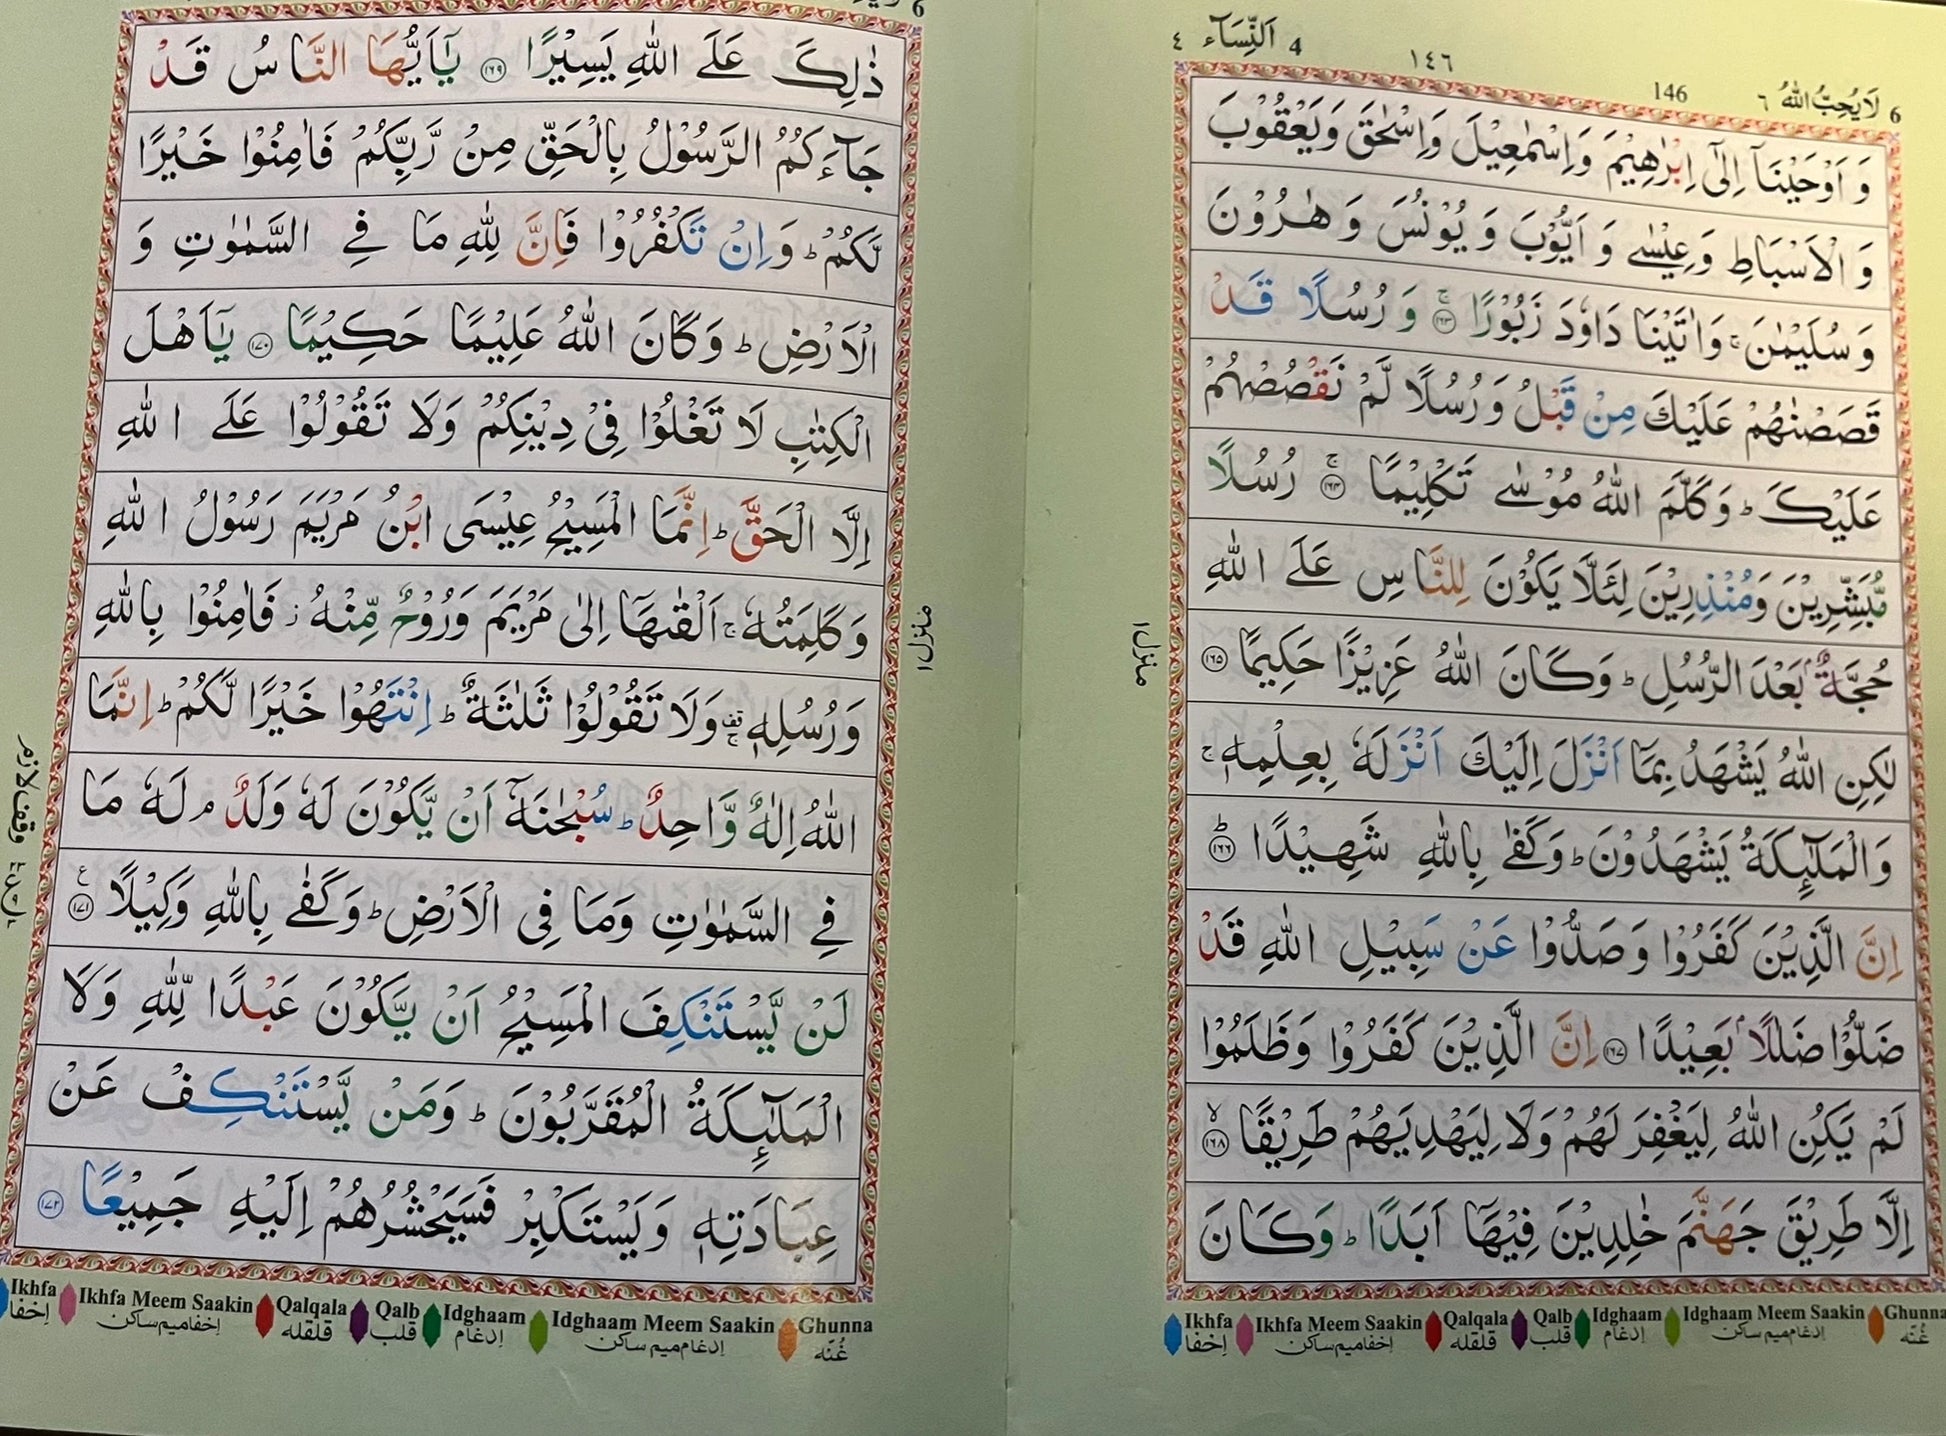 ٤ اَلنِّسَآء 4
١٤٦
146
6 لَا يُحِبُّ اللّٰهُ ٦
وَ اَوْحَيْنَاۤ اِلٰۤى اِبْرٰهِيْمَ وَاِسْمٰعِيْلَ وَاِسْحٰقَ وَيَعْقُوْبَ
وَ الْاَسْبَاطِ وَعِيْسٰى وَ اَيُّوْبَ وَ يُوْنُسَ وَ هٰرُوْنَ
وَ سُلَيْمٰنَ ۚ وَاٰتَيْنَا دَاوٗدَ زَبُوْرًا ۚ ﴿١٦٣﴾ وَ رُسُلًا قَدْ
قَصَصْنٰهُمْ عَلَيْكَ مِنْ قَبْلُ وَ رُسُلًا لَّمْ نَقْصُصْهُمْ
عَلَيْكَ ؕ وَ كَلَّمَ اللّٰهُ مُوْسٰى تَكْلِيْمًا ۚ ﴿١٦٤﴾ رُسُلًا
مُّبَشِّرِيْنَ وَمُنْذِرِيْنَ لِئَلَّا يَكُوْنَ لِلنَّاسِ عَلَى اللّٰهِ
حُجَّةٌۢ بَعْدَ الرُّسُلِ ؕ وَكَانَ اللّٰهُ عَزِيْزًا حَكِيْمًا ﴿١٦٥﴾
لٰكِنِ اللّٰهُ يَشْهَدُ بِمَاۤ اَنْزَلَ اِلَيْكَ اَنْزَلَهٗ بِعِلْمِهٖ ۚ
وَالْمَلٰٓئِكَةُ يَشْهَدُوْنَ ؕ وَكَفٰى بِاللّٰهِ شَهِيْدًا ؕ ﴿١٦٦﴾
اِنَّ الَّذِيْنَ كَفَرُوْا وَ صَدُّوْا عَنْ سَبِيْلِ اللّٰهِ قَدْ
ضَلُّوْا ضَلٰلًاۢ بَعِيْدًا ﴿١٦٧﴾ اِنَّ الَّذِيْنَ كَفَرُوْا وَظَلَمُوْا
لَمْ يَكُنِ اللّٰهُ لِيَغْفِرَ لَهُمْ وَلَا لِيَهْدِيَهُمْ طَرِيْقًا ۙ ﴿١٦٨﴾
اِلَّا طَرِيْقَ جَهَنَّمَ خٰلِدِيْنَ فِيْهَاۤ اَبَدًا ؕ وَكَانَ
منزل ١
Ikhfa Ikhfa Meem Saakin Qalqala Qalb Idghaam Idghaam Meem Saakin Ghunna
اِخفا اِخفا میم ساکن قلقله قلب اِدغام اِدغام میم ساکن غُنّه
6
ذٰلِكَ عَلَى اللّٰهِ يَسِيْرًا ﴿١٦٩﴾ يٰۤاَيُّهَا النَّاسُ قَدْ
جَآءَكُمُ الرَّسُوْلُ بِالْحَقِّ مِنْ رَّبِّكُمْ فَاٰمِنُوْا خَيْرًا
لَّكُمْ ؕ وَاِنْ تَكْفُرُوْا فَاِنَّ لِلّٰهِ مَا فِى السَّمٰوٰتِ وَ
الْاَرْضِ ؕ وَكَانَ اللّٰهُ عَلِيْمًا حَكِيْمًا ﴿١٧٠﴾ يٰۤاَهْلَ
الْكِتٰبِ لَا تَغْلُوْا فِىْ دِيْنِكُمْ وَلَا تَقُوْلُوْا عَلَى اللّٰهِ
اِلَّا الْحَقَّ ؕ اِنَّمَا الْمَسِيْحُ عِيْسَى ابْنُ مَرْيَمَ رَسُوْلُ اللّٰهِ
وَكَلِمَتُهٗ ۚ اَلْقٰىهَاۤ اِلٰى مَرْيَمَ وَرُوْحٌ مِّنْهُ ؗ فَاٰمِنُوْا بِاللّٰهِ
وَرُسُلِهٖ ۚ قف وَلَا تَقُوْلُوْا ثَلٰثَةٌ ؕ اِنْتَهُوْا خَيْرًا لَّكُمْ ؕ اِنَّمَا
اللّٰهُ اِلٰهٌ وَّاحِدٌ ؕ سُبْحٰنَهٗۤ اَنْ يَّكُوْنَ لَهٗ وَلَدٌ ۘ لَهٗ مَا
فِى السَّمٰوٰتِ وَمَا فِى الْاَرْضِ ؕ وَكَفٰى بِاللّٰهِ وَكِيْلًا ﴿١٧١﴾ ع
لَنْ يَّسْتَنْكِفَ الْمَسِيْحُ اَنْ يَّكُوْنَ عَبْدًا لِّلّٰهِ وَلَا
الْمَلٰٓئِكَةُ الْمُقَرَّبُوْنَ ؕ وَمَنْ يَّسْتَنْكِفْ عَنْ
عِبَادَتِهٖ وَيَسْتَكْبِرْ فَسَيَحْشُرُهُمْ اِلَيْهِ جَمِيْعًا ﴿١٧٢﴾
منزل ١
وقف لازم
Ikhfa Ikhfa Meem Saakin Qalqala Qalb Idghaam Idghaam Meem Saakin Ghunna
اِخفا اِخفا میم ساکن قلقله قلب اِدغام اِدغام میم ساکن غُنّه